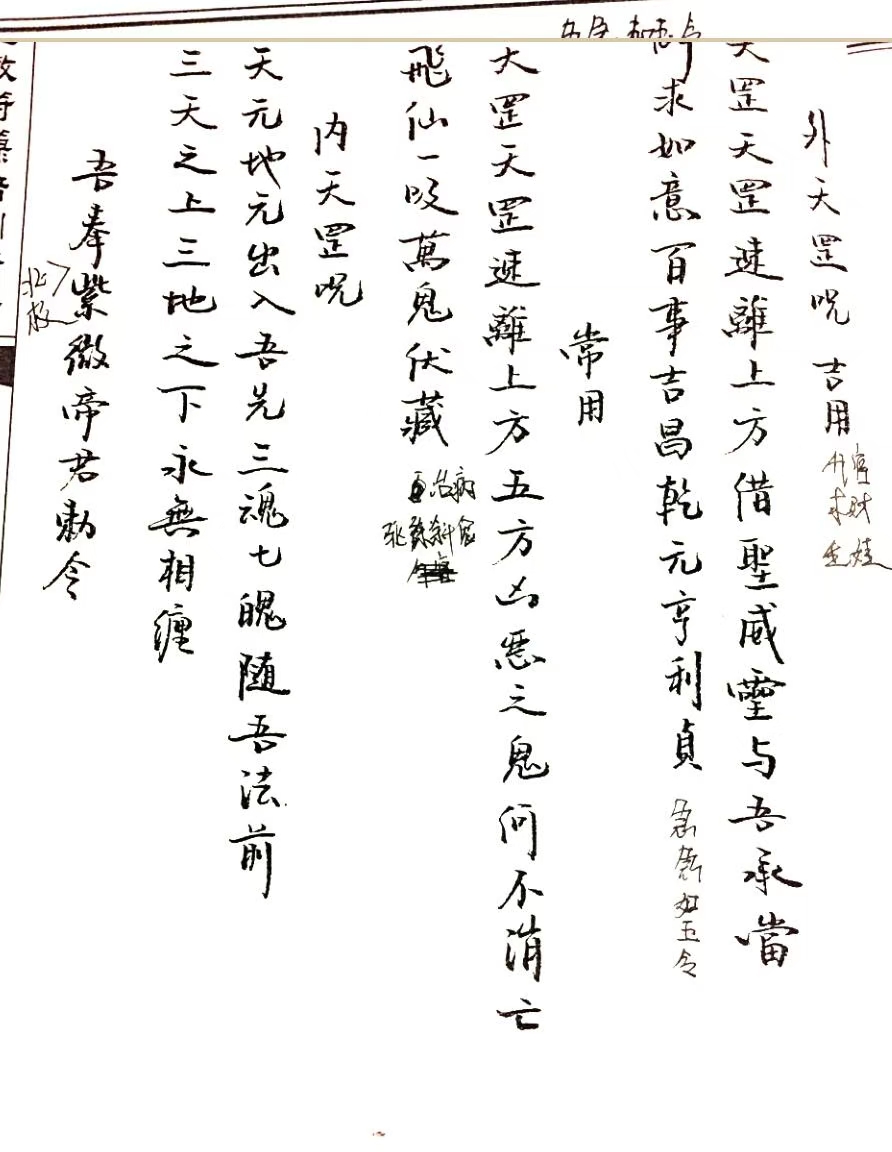 外天罡咒 吉用
求财
天罡天罡速離上方借聖威靈与吾承當
所求如意百事吉昌乾元亨利貞 急急如玉令
常用
天罡天罡速離上方五方凶惡之鬼何不消亡
飛仙一吸萬鬼伏藏
治病
内天罡咒
天元地元出入吾先三魂七魄随吾法前
三天之上三地之下永無相纏
吾奉紫微帝君勅令
北极